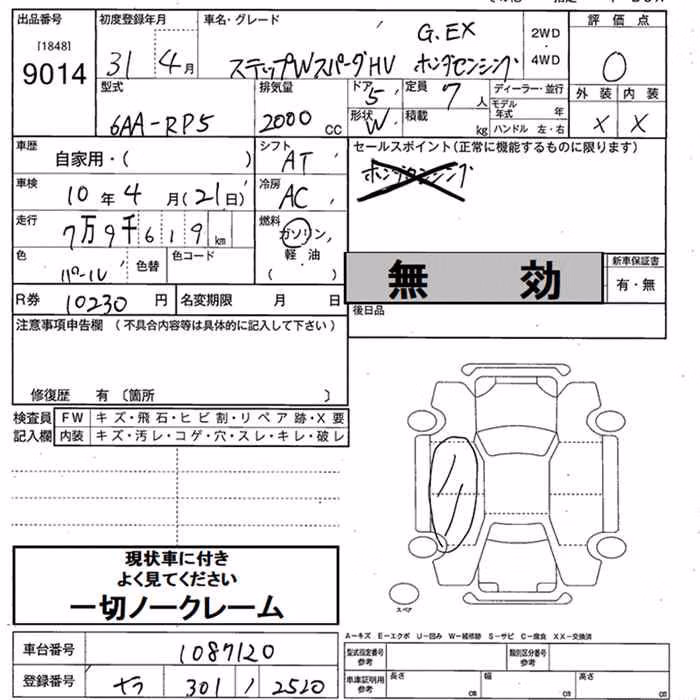 出品番号
[1848]
9014
初度登録年月
31年4月
車名・グレード
G.EX
ステップWスパーダHV ホンダセンシング
2WD
・
4WD
評価点
0
外装 内装
X X
型式
6AA-RP5
排気量
2000 cc
ドア
5
形状
W
定員
7人
積載
kg
ディーラー・並行
モデル年式 年
ハンドル 左・右
車歴
自家用・( )
シフト
AT
車検
10年4月(21日)
冷房
AC
走行
7万9千619km
燃料
ガソリン,
軽油
( )
色
パール
色替
色コード
R券 10230円
名変期限 月 日
セールスポイント(正常に機能するものに限ります)
ホンダセンシング
無効
新車保証書
有・無
後日品
注意事項申告欄 (不具合内容等は具体的に記入して下さい)
修復歴 有 〔箇所 〕
検査員
記入欄
FW キズ・飛石・ヒビ割・リペア跡・X要
内装 キズ・汚レ・コゲ・穴・スレ・キレ・破レ
現状車に付き
よく見てください
一切ノークレーム
スペア
A-キズ E-エクボ U-凹み W-補修跡 S-サビ C-腐食 XX-交換済
車台番号 1087120
登録番号 301 2520
型式指定番号
参考
類別区分番号
参考
車庫証明用
参考
長さ cm
幅 cm
高さ cm